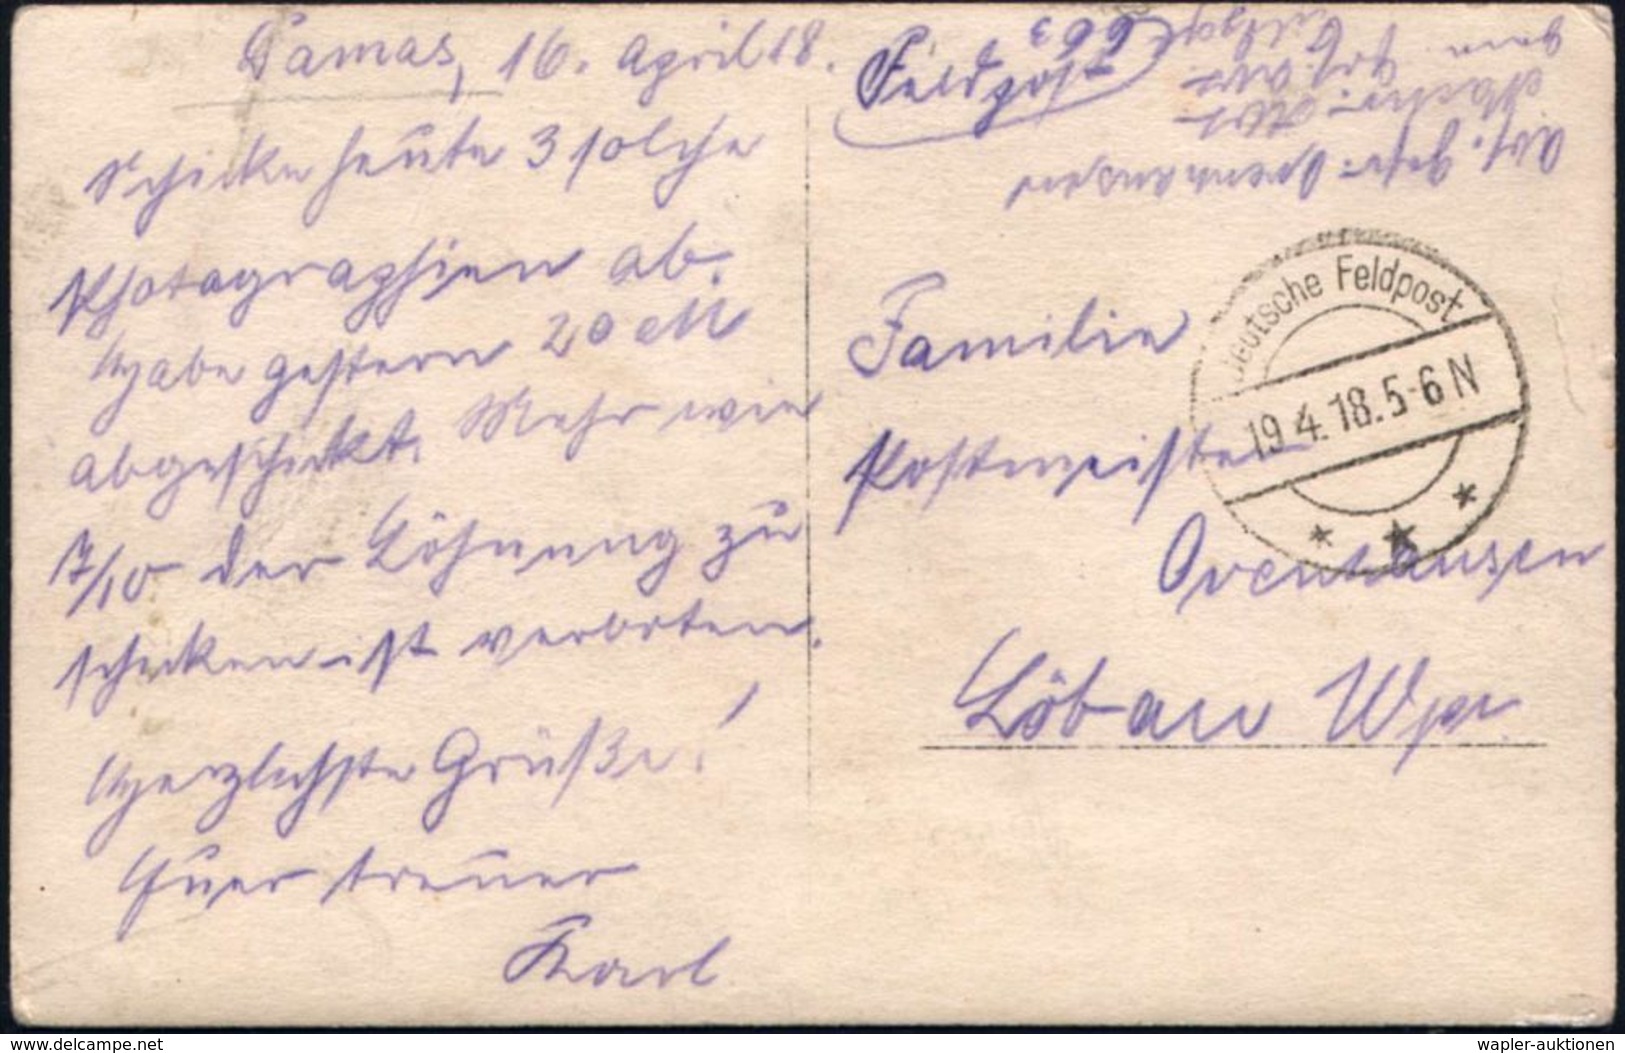 Damas, 16. April 18.
Schicke heute 3 solche
Photographien ab.
Habe gestern 20 M
abgeschickt. Mehr wie
7/10 der Löhnung zu
schicken ist verboten.
Herzlichste Grüße!
Euer treuer
Karl
Feldpost
Abs. Gefr. Ovenhausen
663
Familie
Postmeister
Ovenhausen
Löbau Wpr.
Deutsche Feldpost
19.4.18.5-6N
* * *
www.delcampe.net
wapler-auktionen